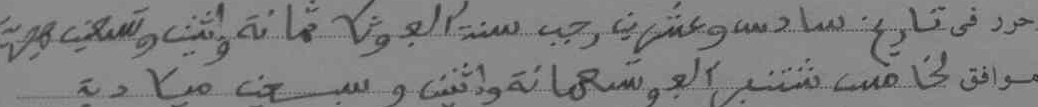 حرر في تاريخ سادس وعشرين رجب سنة الف وثلاثمائة واثنين وتسعين هجرية
موافق لخامس شتنبر الف وتسعمائة واثنين وسبعين ميلادية